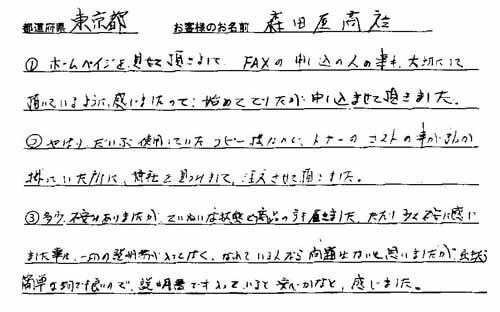 都道府県 東京都 お客様のお名前 森田屋商店
①ホームページを見せて頂きまして、FAXの申し込の人の事も、大切にして
頂いているように感じましたので、始めてでしたが申し込ませて頂きました。
②やはり、だいぶ使用していたコピー機なので、トナーのコストの事がずいぶん
掛っていた所に、御社を見つけまして、注文させて頂きました。
③多少、不安もありましたが、ていねいな状態で商品のうけ届きました。ただ少し不安に感じ
ました事は、一切の説明書が入ってなく、なれている人なら問題はないと思いましたが
簡単な物でも良いので、説明書です入っていると安心かなと、感じました。